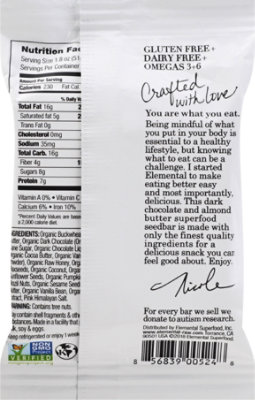 Nutrition Fac
Serving Size 1.8 oz (51
Servings Per Container
Amount Per Serving
Calories 230 Fat Cal
% Daily V
Total Fat 16g 2
Saturated fat 5g 2
Trans Fat 0g
Cholesterol 0mg
Sodium 35mg
Total Carb. 16g
Fiber 4g 1
Sugars 8g
Protein 7g
Vitamin A 0% • Vitamin C
Calcium 6% • Iron 10%
*Percent Daily Values are based
a 2,000 calorie diet.
INGREDIENTS: Organic Buckwhea
utter, Organic Dark Chocolate (Or
ne Sugar, Organic Chocolate Liq
ganic Cocoa Butter, Organic Van
wder), Organic Raw Honey, Orga
axseeds, Organic Coconut, Organ
unflower Seeds, Organic Pumpkin
azil Nuts, Organic Sesame Seed
utter, Organic Vanilla Bean, Orga
tract, Pink Himalayan Salt.
WARNING: Contains tree nuts.
y contain shell fragments & othe
bstances. Made in a facility that
k, soy & eggs.
eep refrigerated or enjoy I week
NON
GMO
Project
VERIFIED
GLUTEN FREE+
DAIRY FREE+
OMEGAS 3+6
Crafted
with Love
You are what you eat.
Being mindful of what
you put in your body is
essential to a healthy
lifestyle, but knowing
what to eat can be a
challenge. I started
Elemental to make
eating better easy
and most importantly,
delicious. This dark
chocolate and almond
butter superfood
seedbar is made with
only the finest quality
ingredients for a
delicious snack you can
feel good about. Enjoy.
Nicole
For every bar we sell we
donate to autism research.
Distributed by Elemental Superfood, Inc.
www.elemental-raw.com Torrance, CA
90501 USA ©2016 Elemental Superfood.
8 56839 00524 6